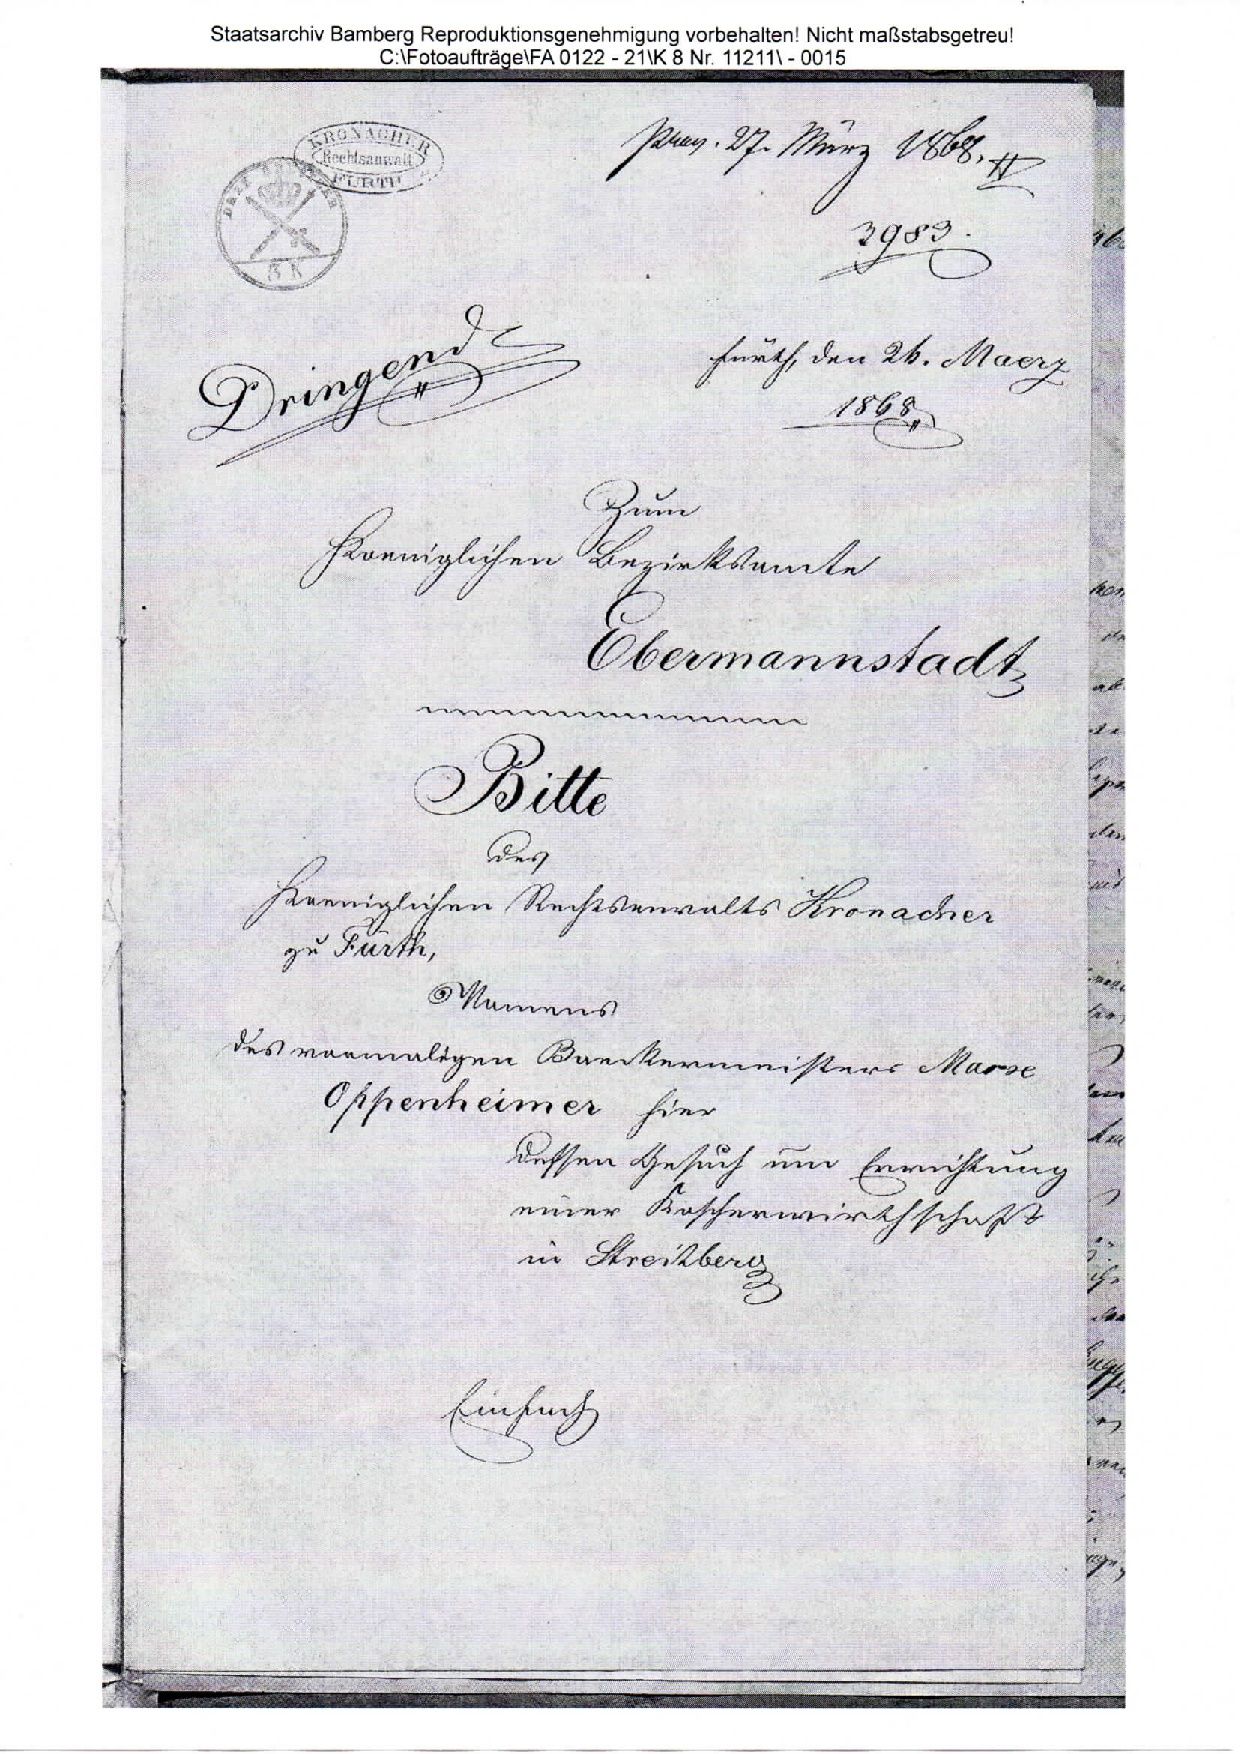 Staatsarchiv Bamberg Reproduktionsgenehmigung vorbehalten! Nicht maßstabsgetreu!
C:\Fotoaufträge\FA 0122 - 21\K 8 Nr. 11211\ - 0015
KRONACHER
Rechtsanwalt
FÜRTH
3 K
praes. 27. März 1868.
3983.
Dringend
Fürth, den 26. Maerz
1868
Zum
Koeniglichen Bezirksamte
Ebermannstadt
Bitte
des
Koeniglichen Rechtsanwalts Kronacher
zu Fürth,
Namens
des vormaligen Baeckermeisters
Oppenheimer hier
dessen Gesuch um Errichtung
einer Koscherwirthschaft
in Streitberg
Einfach